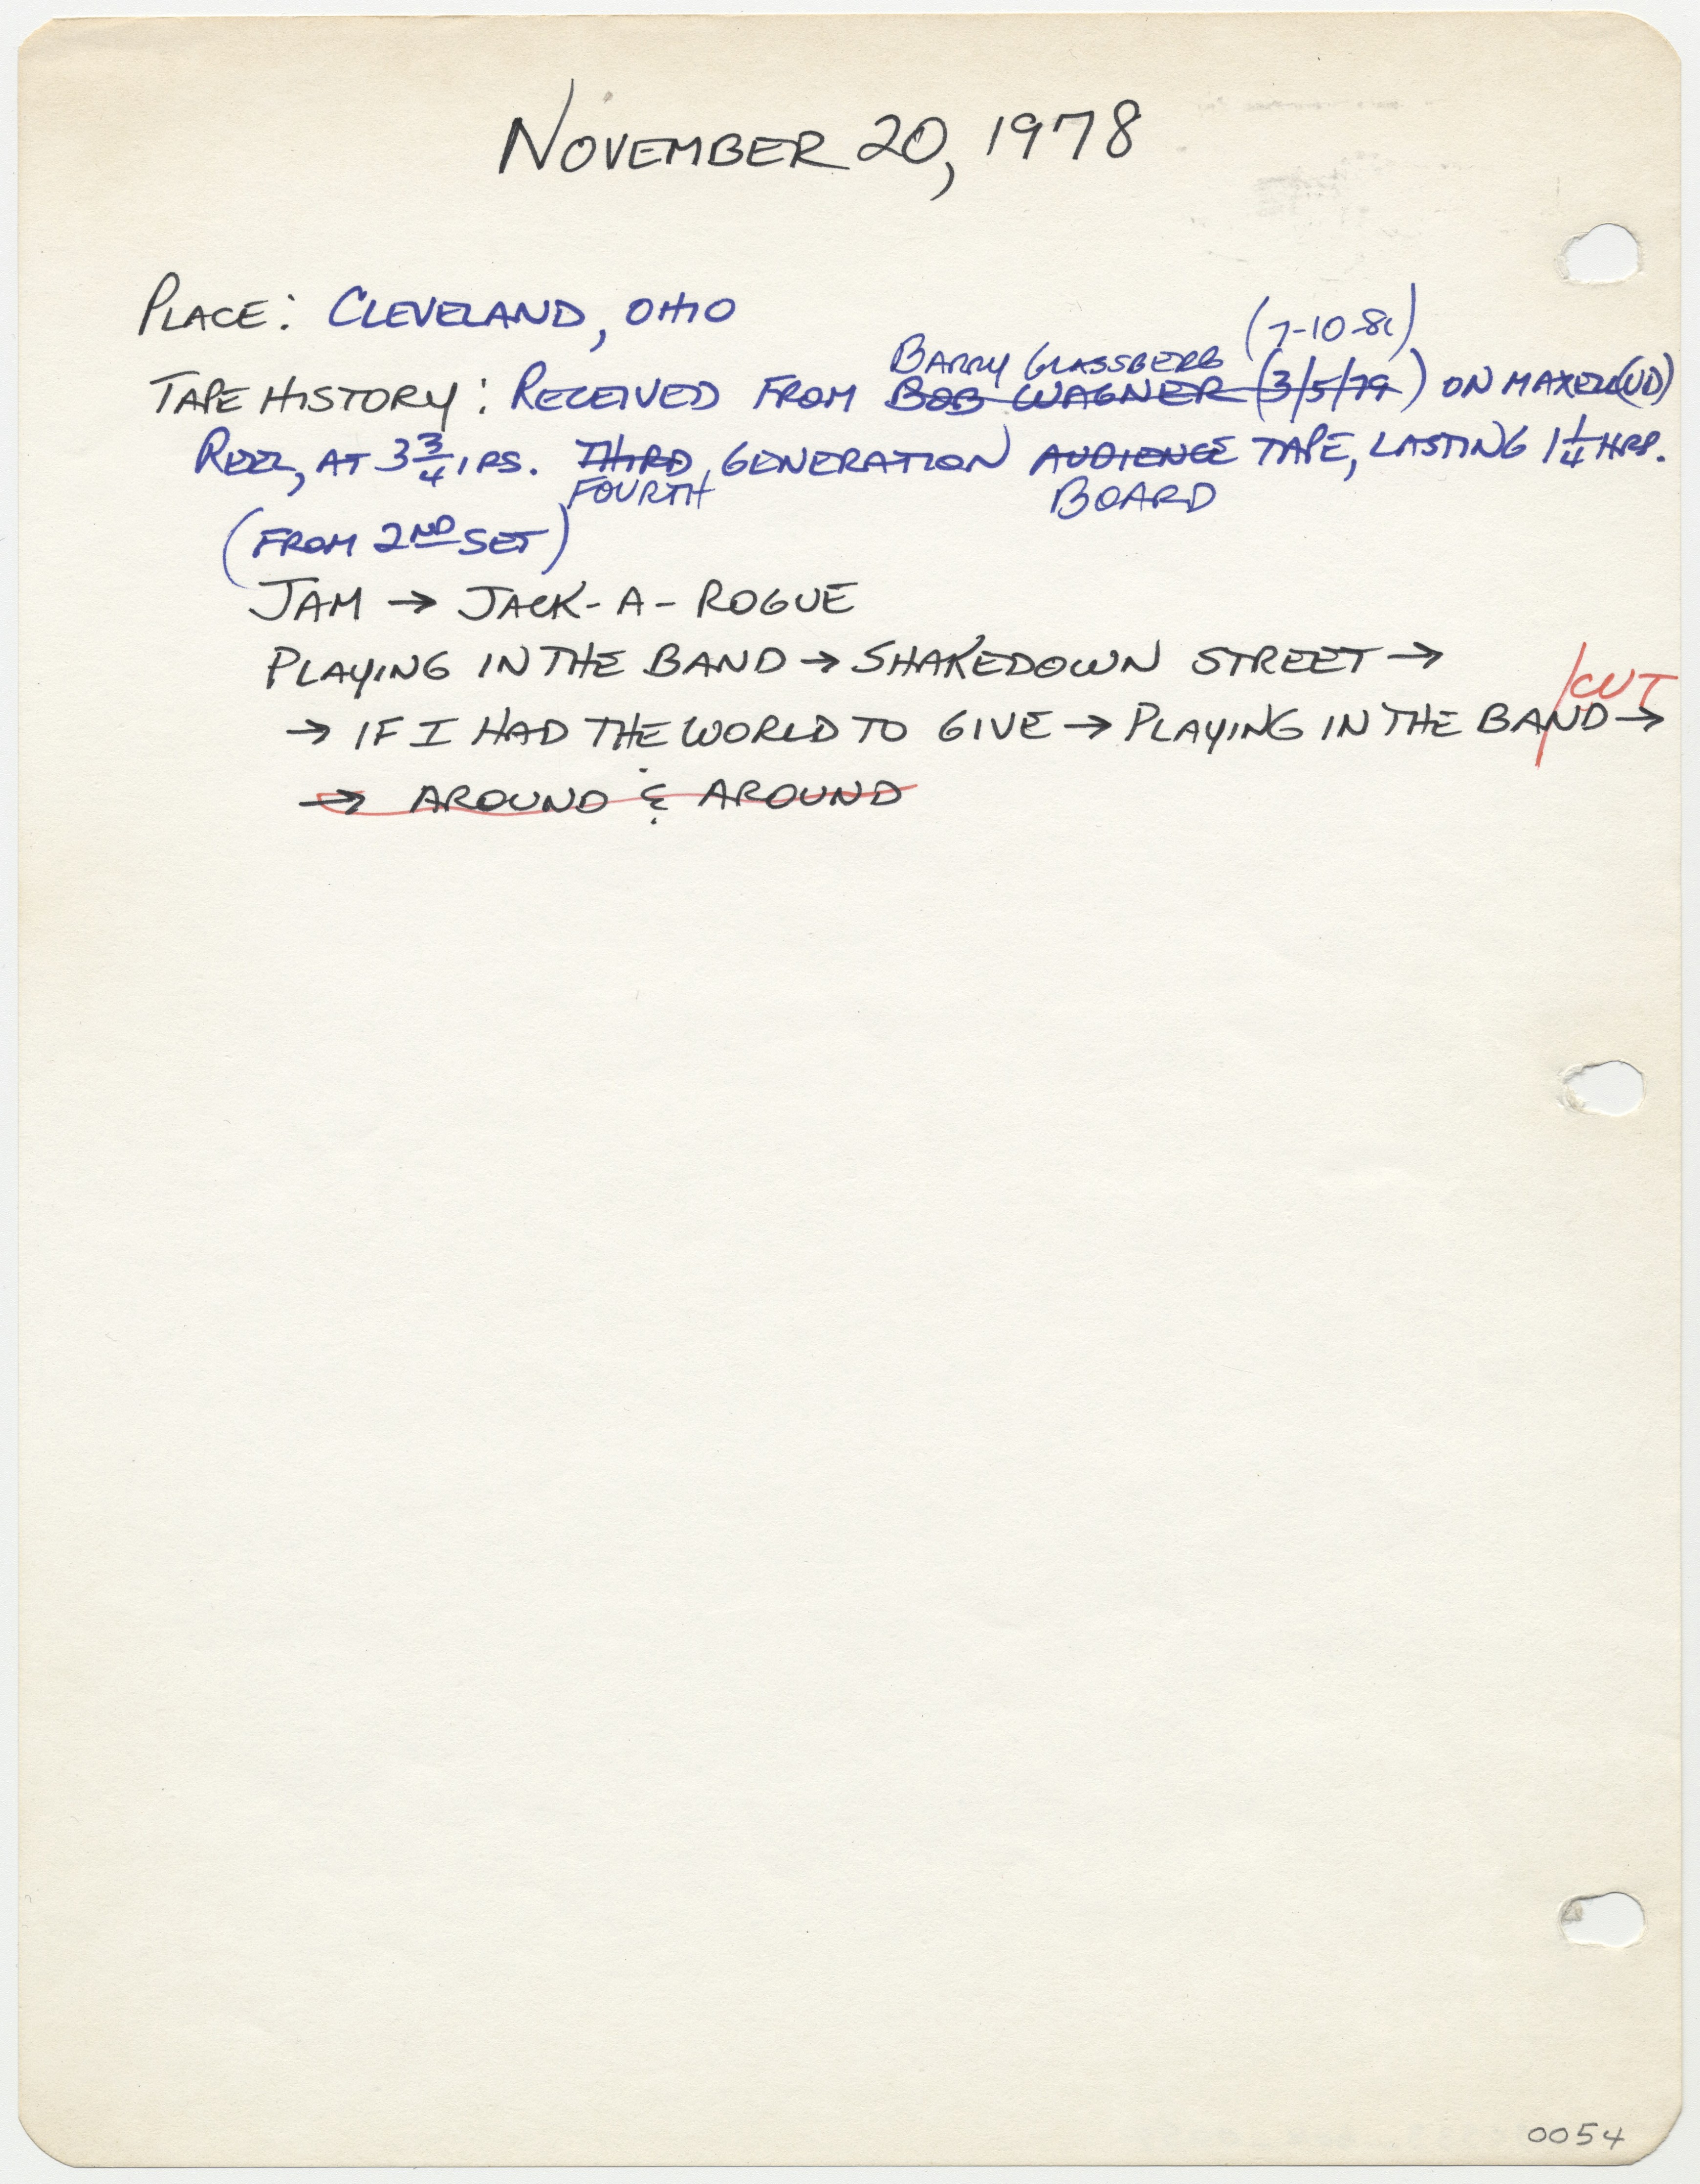 NOVEMBER 20, 1978
PLACE: CLEVELAND, OHIO
(7-10-81)
BARRY GLASSBERG
TAPE HISTORY: RECEIVED FROM BOB WAGNER (3/5/79) ON MAXELL (UD)
REEL, AT 3 3/4 IPS. THIRD GENERATION AUDIENCE TAPE, LASTING 1 1/4 HRS.
FOURTH BOARD
(FROM 2ND SET)
JAM → JACK-A-ROGUE
PLAYING IN THE BAND → SHAKEDOWN STREET →
/CUT
→ IF I HAD THE WORLD TO GIVE → PLAYING IN THE BAND →
→ AROUND & AROUND
0054